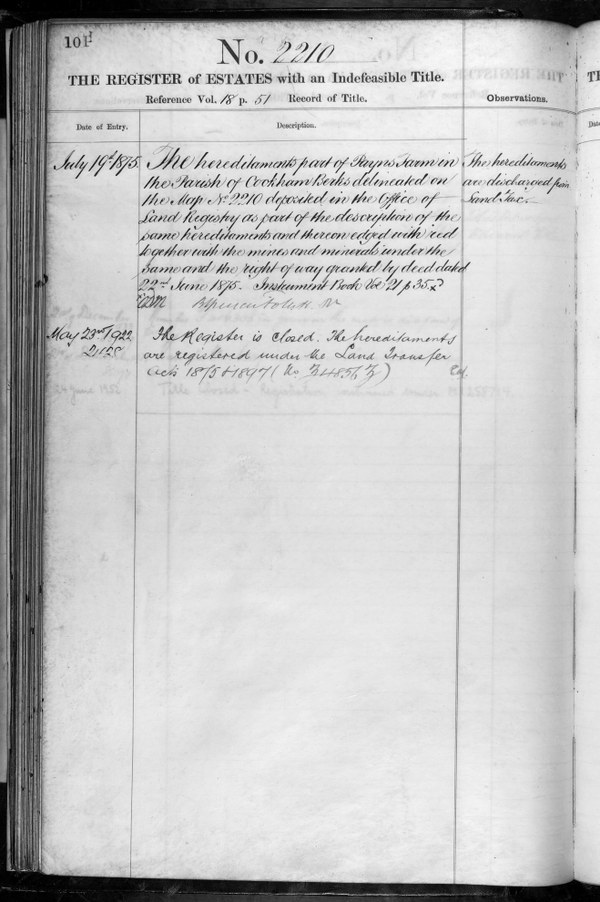 101
No. 2210
THE REGISTER of ESTATES with an Indefeasible Title.
Reference Vol. 18 p. 51 Record of Title.
Observations.
Date of Entry.
Description.
July 19th 1875.
The hereditaments part of Payns Farm in
the Parish of Cockham Berks delineated on
the Map No 2210 deposited in the Office of
Land Registry as part of the description of the
same hereditaments and thereon edged with red
together with the mines and minerals under the
same and the right of way granted by deed dated
22nd June 1875. Instrument Book Vol 21 p 35
The hereditaments
are discharged from
Land Tax.
May 23rd 1922
The Register is closed. The hereditaments
are registered under the Land Transfer
Acts 1875 & 1897 (No